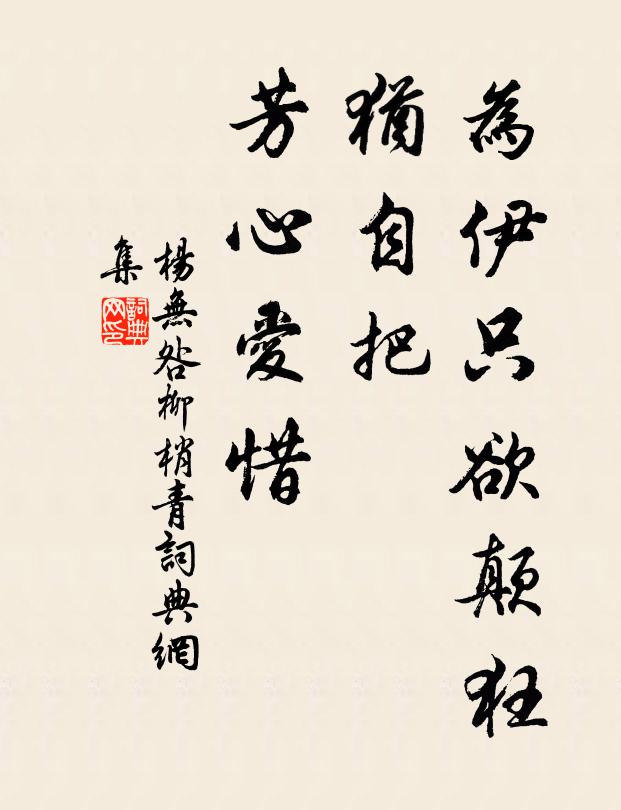 為伊只欲顛狂
猶自把
芳心愛惜
楊無咎柳梢青詞典網
集
詞典
网印